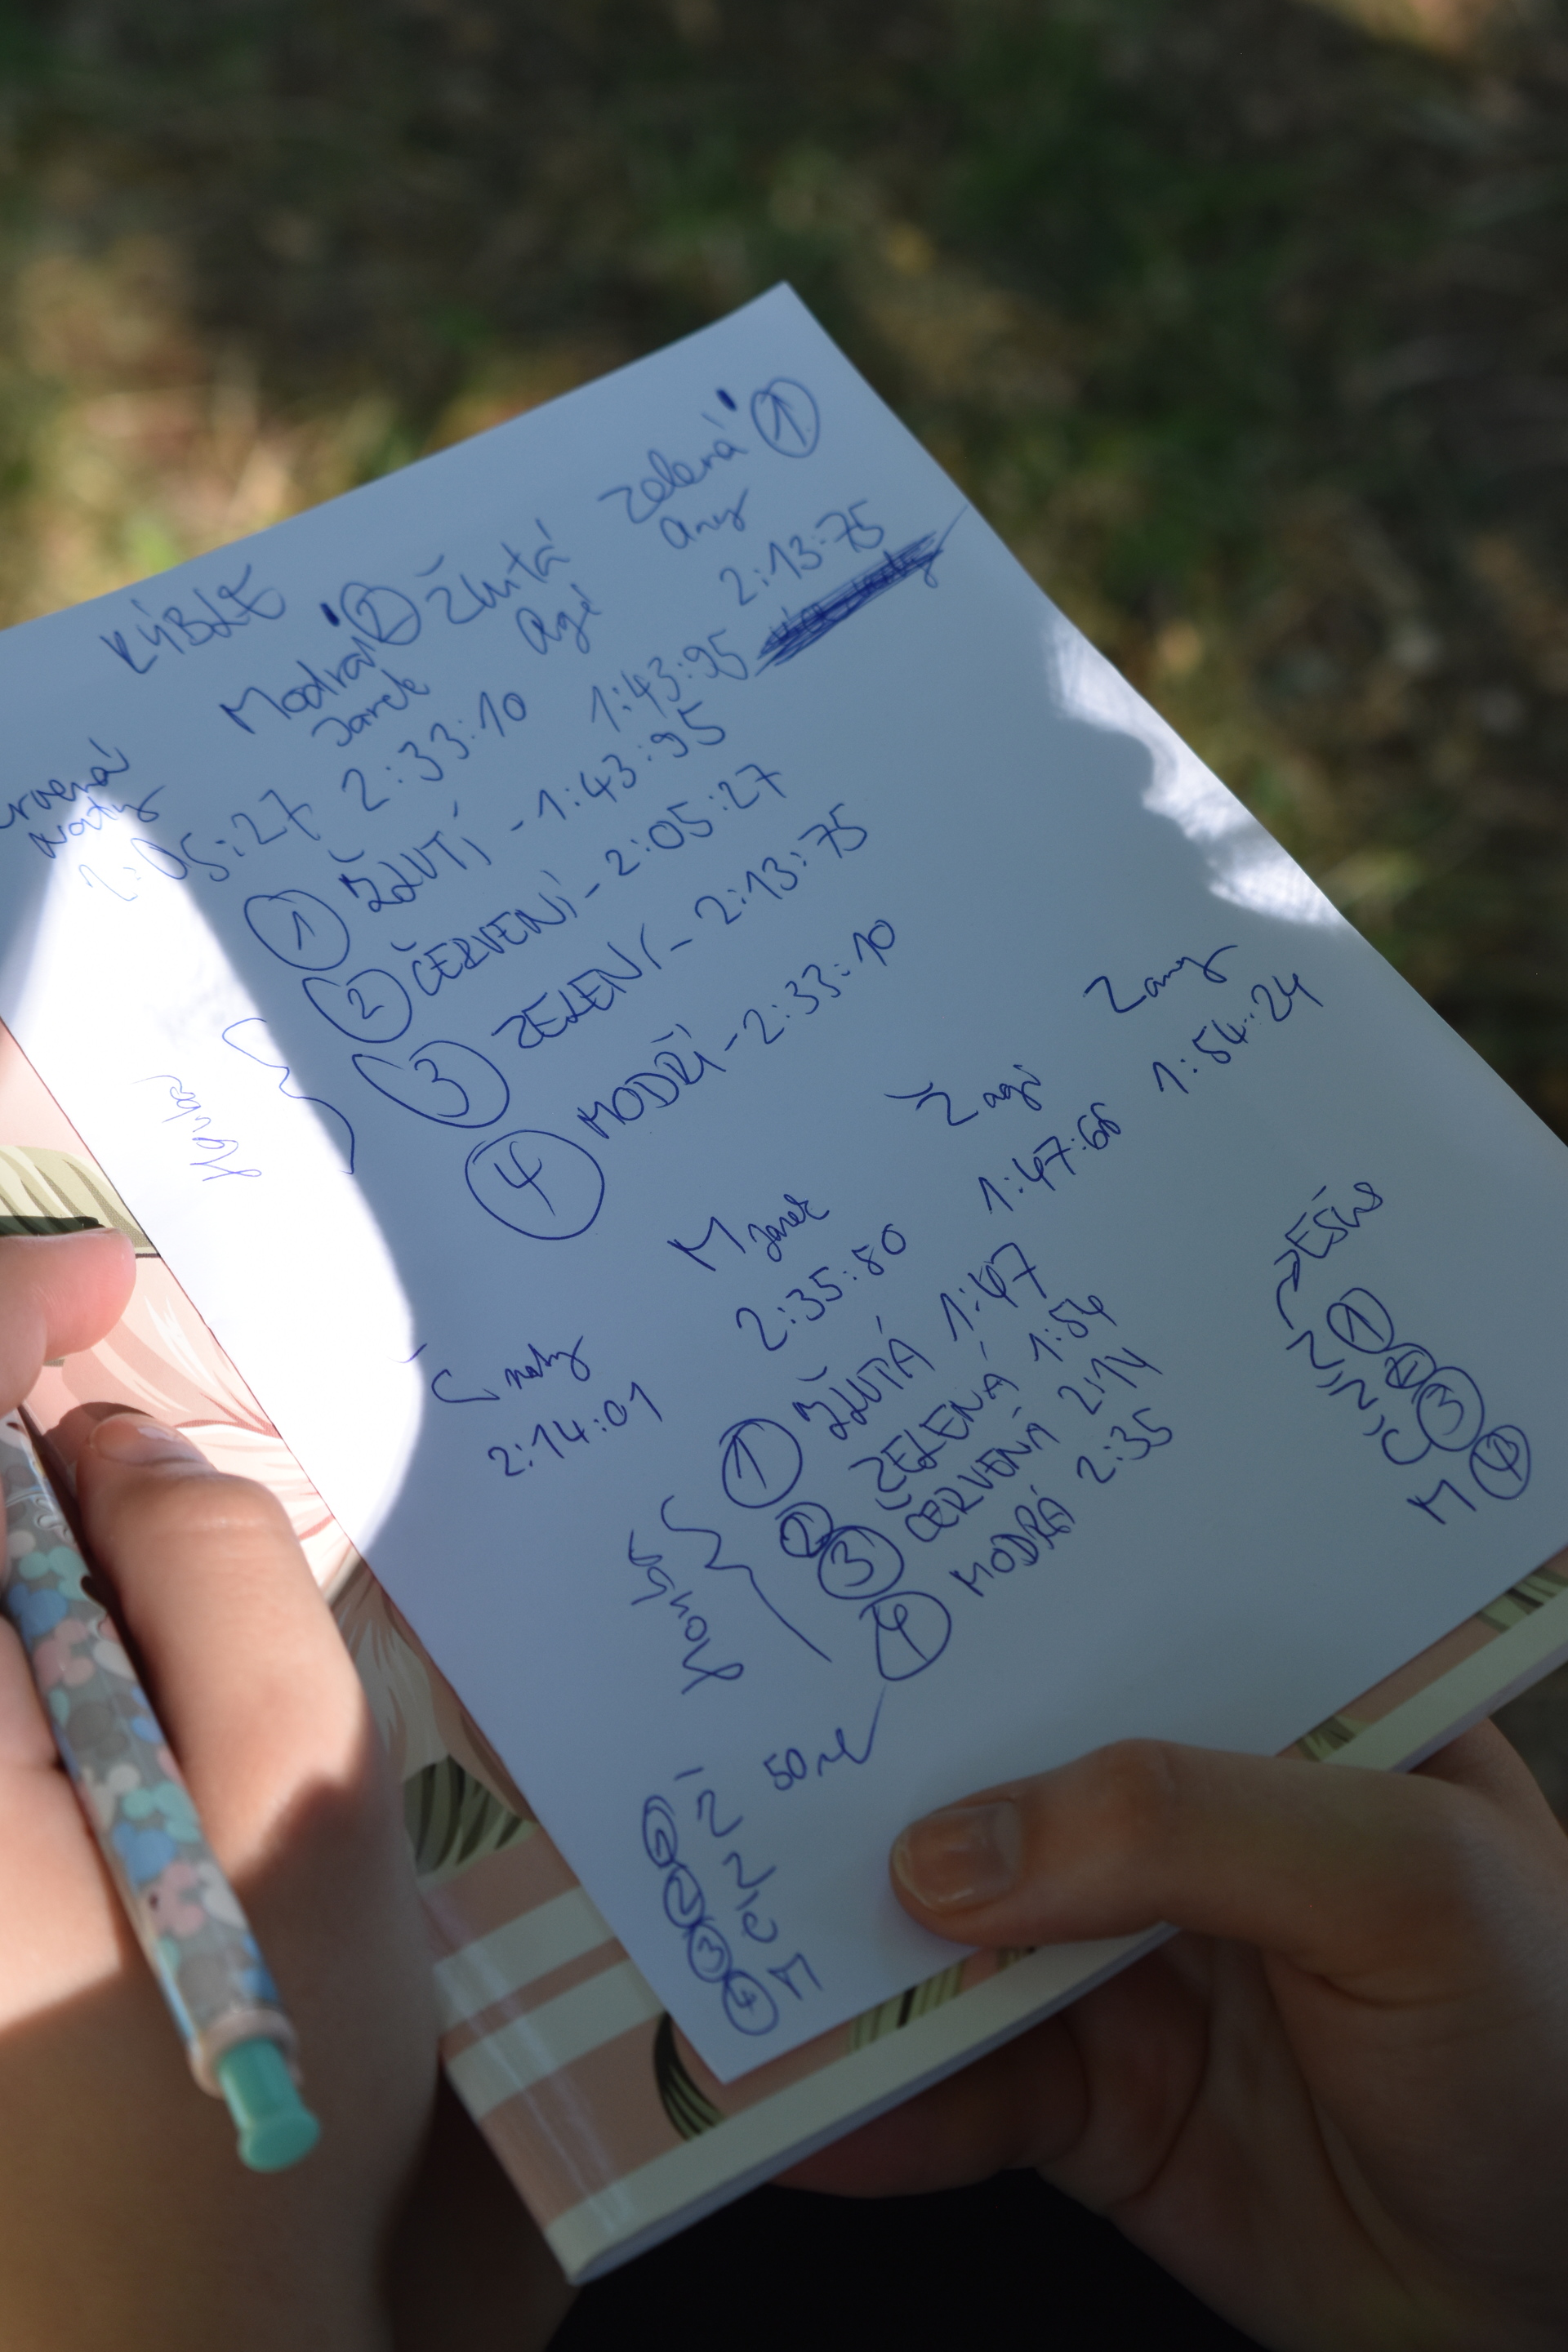 KÝBLE
Modrá ② Žlutá Zelená ①
Jarek Agi Any
2:05:27 2:33:10 1:43:95 2:13:75
① ŽLUTÍ - 1:43:95
② ČERVENÍ - 2:05:27
③ ZELENÍ - 2:13:75
④ MODŘÍ - 2:33:10
Č naty M Jarek Ž agi Z any
2:14:01 2:35:80 1:47:68 1:54:24
① ŽLUTÁ 1:47
② ZELENÁ 1:54
③ ČERVENÁ 2:14
④ MODRÁ 2:35
① Ž
② Z
③ Č
④ M
① Ž
② Z
③ Č
④ M